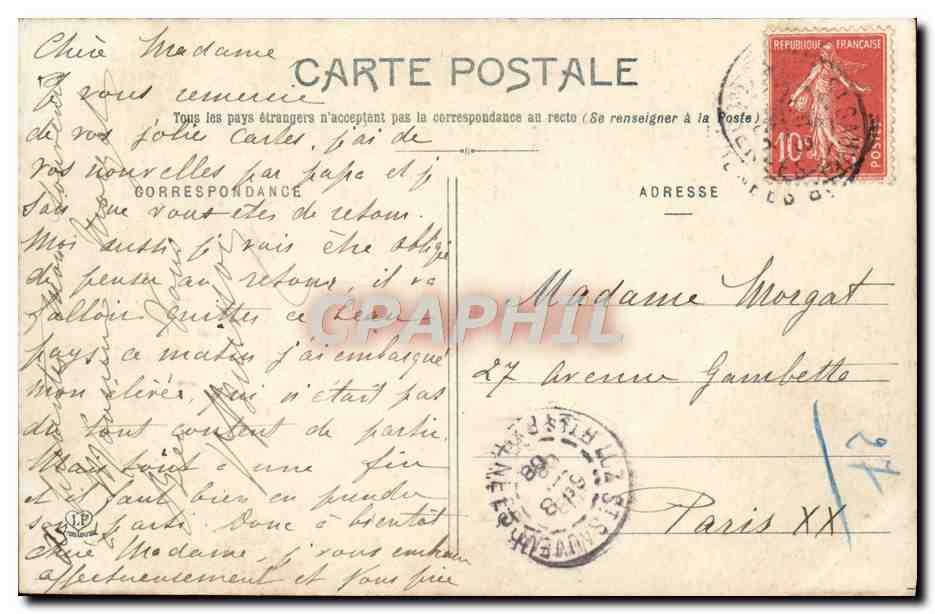 CARTE POSTALE
Tous les pays étrangers n'acceptent pas la correspondance au recto (Se renseigner à la Poste)
CORRESPONDANCE
ADRESSE
REPUBLIQUE FRANÇAISE
10
POSTES
Chère Madame
J vous remercie
de vos jolie cartes, j'ai de
vos nouvelles par papa et j
sais que vous êtes de retour.
Moi aussi j vais être obligé
de penser au retour, il va
falloir quitter ce beau
pays ce matin j'ai embarqué
mon élève, qui n'était pas
du tout content de partir.
Mais tout a une fin
et il faut bien en prendre
son parti. Donc à bientôt
chère Madame, j vous embrasse
affectueusement et vous prie
Madame Morgat
27 Avenue Gambetta
Paris XX
27
CPAPHIL
LUZ ST SAUVEUR